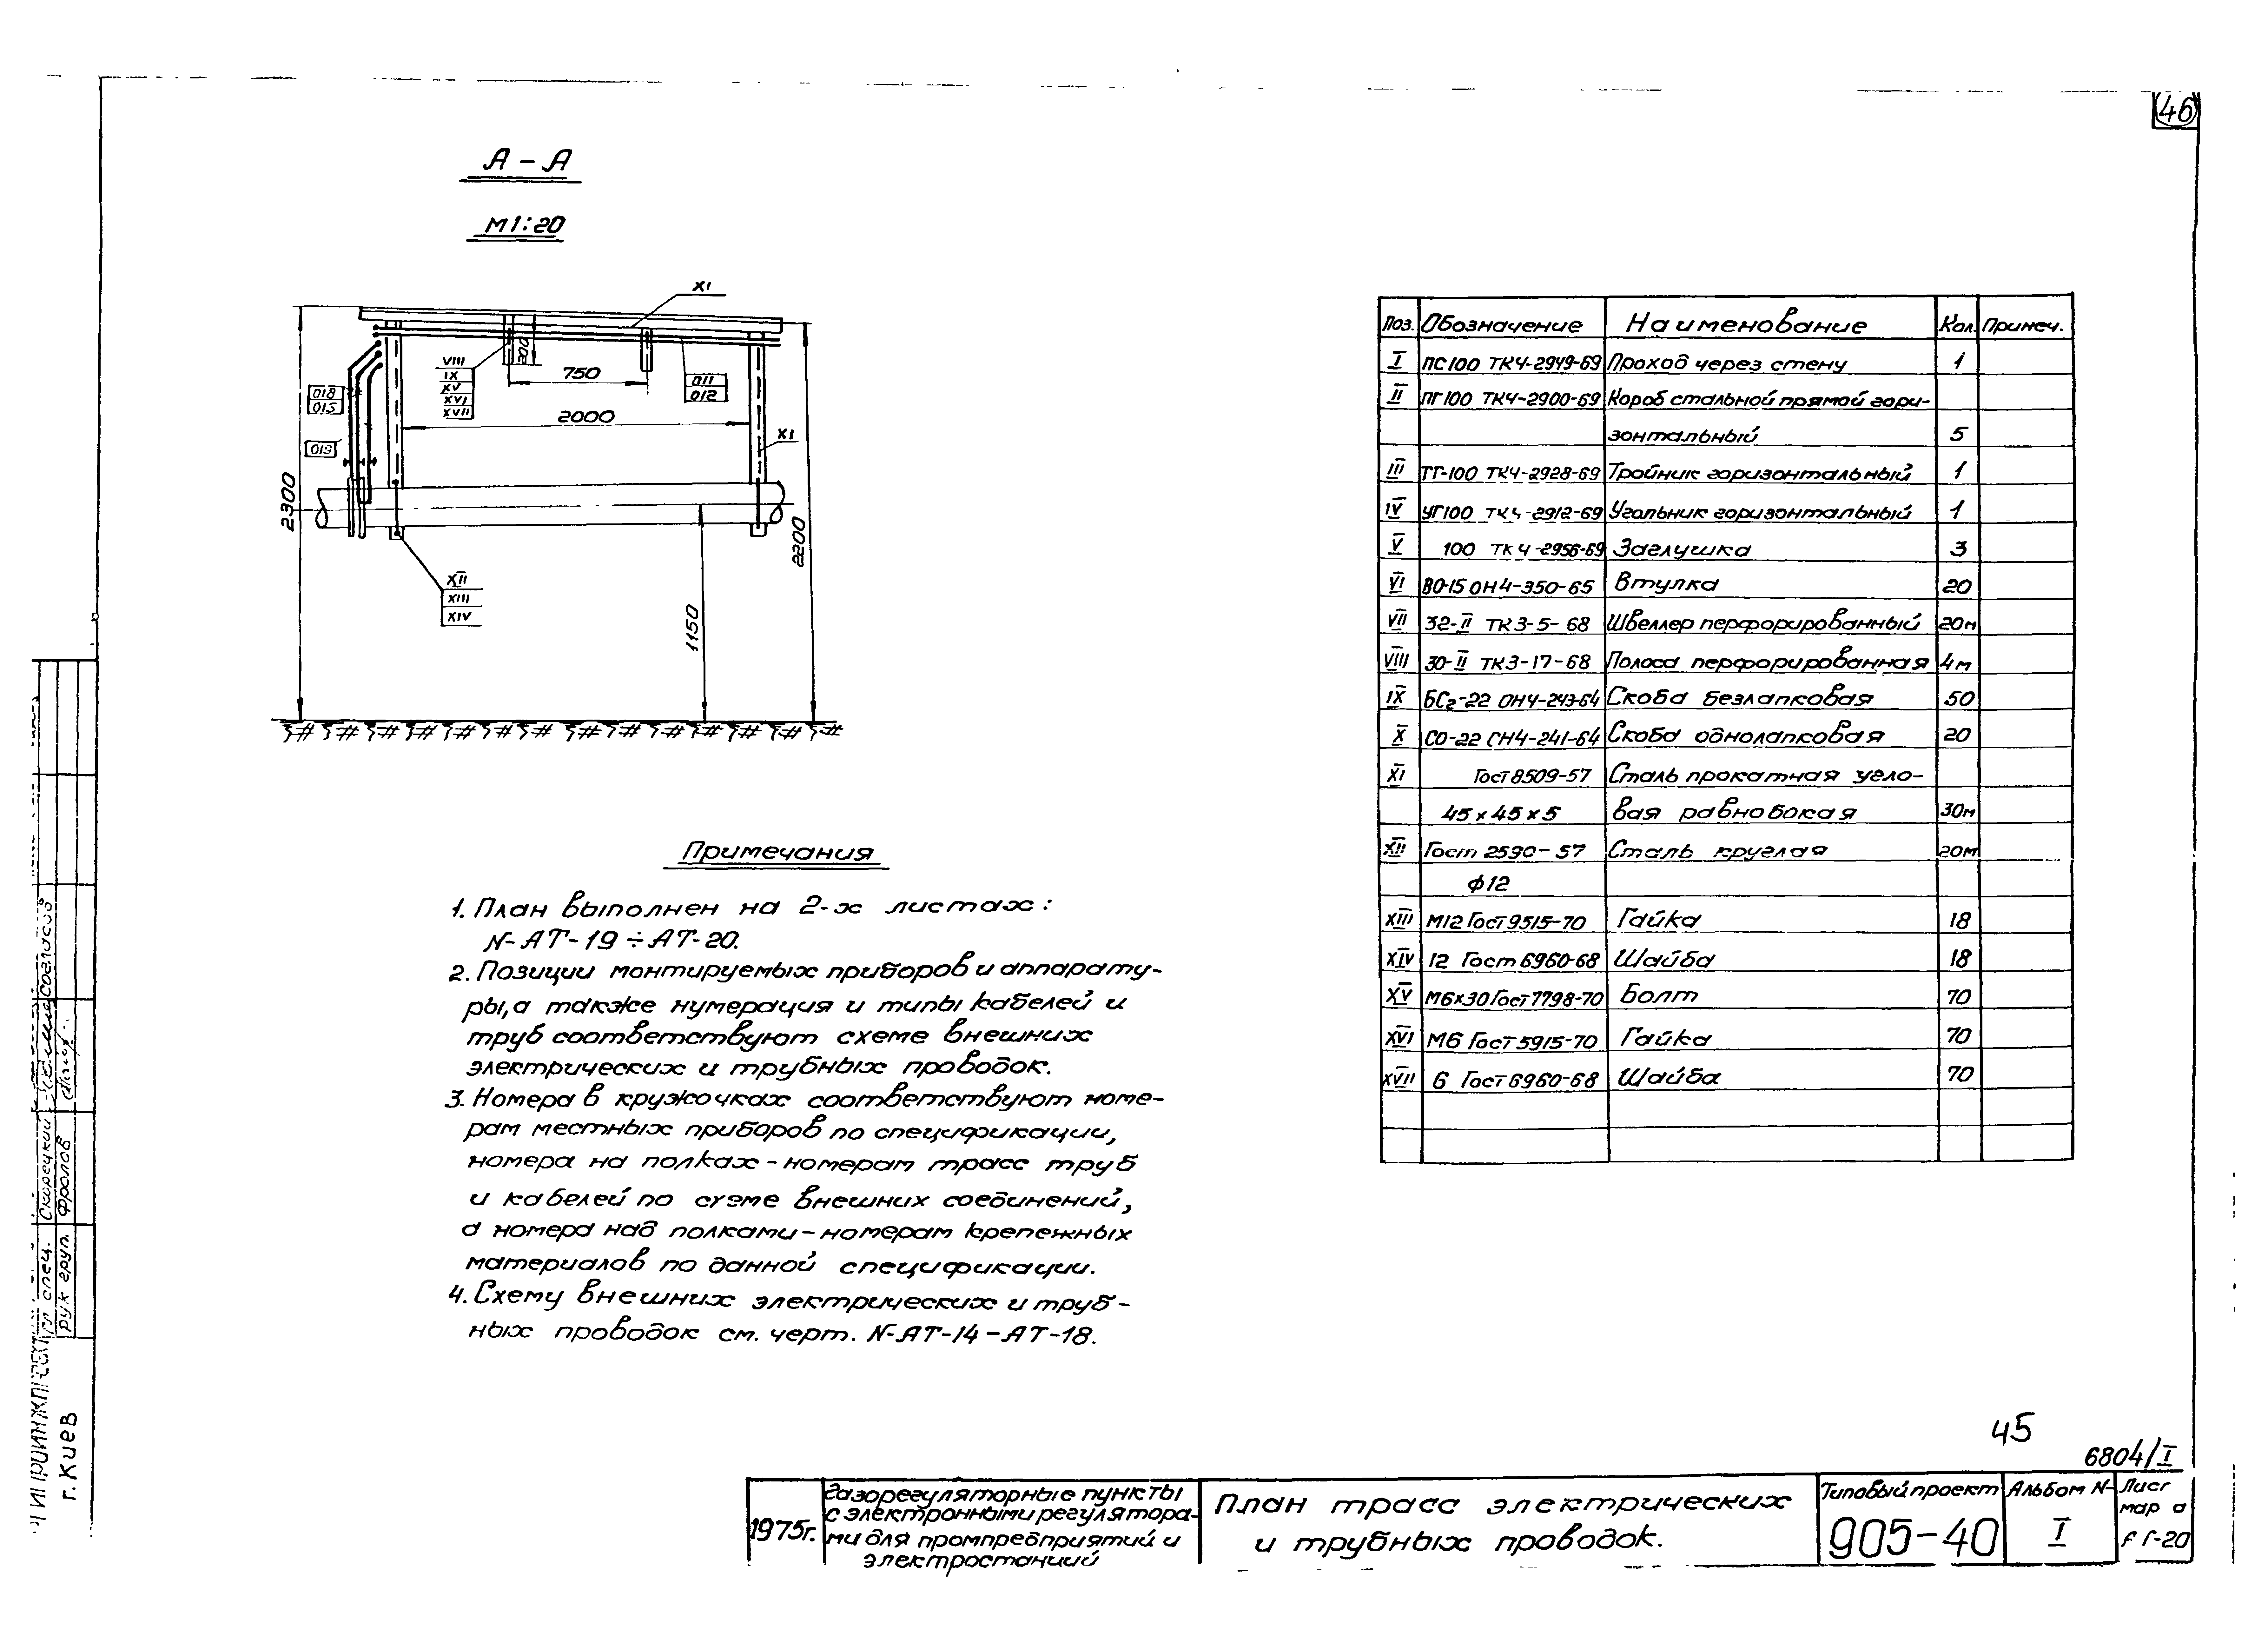 46
А – А
М 1:20
XI
VIII
IX
XV
XVI
XVII
200
750
011
012
018
015
2000
XI
019
2300
2200
1150
XII
XIII
XIV
Примечания
1. План выполнен на 2-х листах:
N-АТ-19÷АТ-20.
2. Позиции монтируемых приборов и аппарату-
ры, а также нумерация и типы кабелей и
труб соответствуют схеме внешних
электрических и трубных проводок.
3. Номера в кружочках соответствуют номе-
рам местных приборов по спецификации,
номера на полках – номерам трасс труб
и кабелей по схеме внешних соединений,
а номера над полками – номерам крепежных
материалов по данной спецификации.
4. Схему внешних электрических и труб-
ных проводок см. черт. N-АТ-14–АТ-18.
Поз. Обозначение Наименование Кол. Примеч.
I ПС100 ТК4-2949-69 Проход через стену 1
II ПГ100 ТК4-2900-69 Короб стальной прямой гори-
зонтальный 5
III ТГ-100 ТК4-2928-69 Тройник горизонтальный 1
IV УГ100 ТК4-2912-69 Угольник горизонтальный 1
V 100 ТК4-2956-69 Заглушка 3
VI В0-15 ОН4-350-65 Втулка 20
VII 32-II ТК3-5-68 Швеллер перфорированный 20м
VIII 30-II ТК3-17-68 Полоса перфорированная 4м
IX БСг-22 ОН4-243-64 Скоба безлапковая 50
X СО-22 ОН4-241-64 Скоба однолапковая 20
XI Гост 8509-57 Сталь прокатная угло-
45х45х5 вая равнобокая 30м
XII Гост 2590-57 Сталь круглая 20м
ф12
XIII М12 Гост 9515-70 Гайка 18
XIV 12 Гост 6960-68 Шайба 18
XV М6х30 Гост 7798-70 Болт 70
XVI М6 Гост 5915-70 Гайка 70
XVII 6 Гост 6960-68 Шайба 70
Гл спец. Скорецкий
рук груп. Фролов
г. Киев
45
6804/I
1975г.
Газорегуляторные пункты
с электронными регулятора-
ми для промпредприятий и
электростанций
План трасс электрических
и трубных проводок.
Типовый проект
905-40
Альбом N-
I
Лист
мар а
Г-20